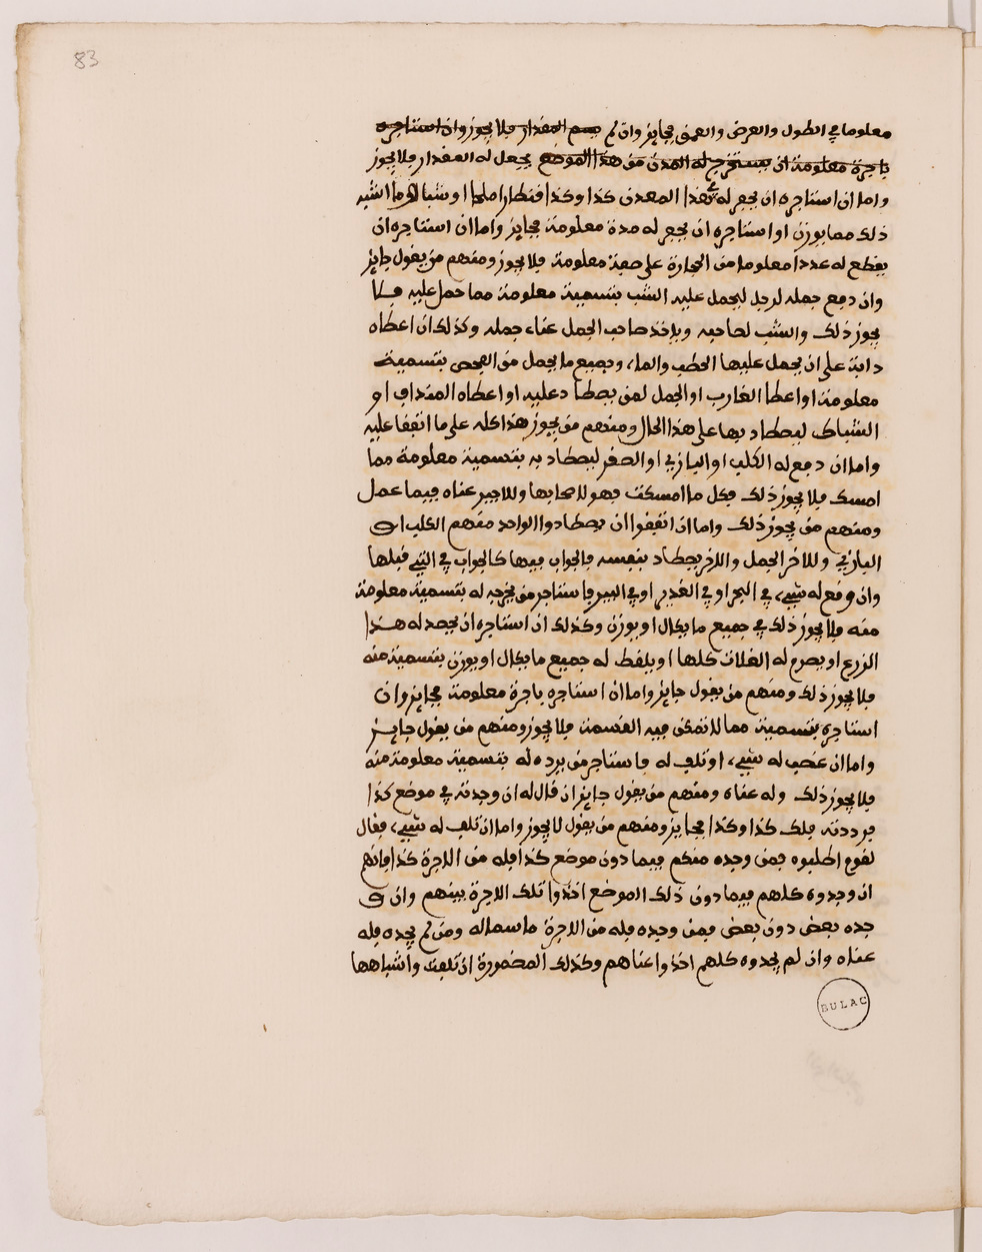 83
معلوما في الطول والعرض والعمق فجايز وان لم يسم المقدار فلا يجوز وان استاجره
باجرة معلومة ان يستخرج له المعدن من هذا الموضع يجعل له المقدار فلا يجوز
واما ان استاجره ان يجر له من هذا المعدن كذا وكذا قنطارا ملحا او شبا او ما اشبه
ذلك مما يوزن او استاجره ان يجر له مدة معلومة فجايز واما ان استاجره ان
يقطع له عددا معلوما من الحجارة على صفة معلومة فلا يجوز ومنهم من يقول جايز
وان دفع جمله لرجل ليحمل عليه الشب بتسمية معلومة مما حمل عليه فلا
يجوز ذلك والشب لصاحبه وياخذ صاحب الجمل عناء جمله وكذلك ان اعطاه
دابة على ان يحمل عليها الحطب والماء وجميع ما يحمل من الفحص بتسمية
معلومة او اعطا القارب او الجمل لمن يصطاد عليه او اعطاه المنداف او
الشباك ليصطاد بها على هذا الحال ومنهم من يجوز هذا كله على ما اتفقا عليه
واما ان دفع له الكلب او البازي او الصقر ليصطاد به بتسمية معلومة مما
امسك فلا يجوز ذلك فكل ما امسكت فهو لاصحابها وللاجير عناه فيما عمل
ومنهم من يجوز ذلك واما ان اتفقوا ان يصطادوا الواحد منهم الكلب او
البازي وللاخر الجمل والاخر يصطاد بنفسه فالجواب فيها كالجواب في التي قبلها
وان وقع له شيء في البحر او في الغدير او في البير فاستاجر من يخرجه له بتسمية معلومة
منه فلا يجوز ذلك في جميع ما يكال او يوزن وكذلك ان استاجره ان يحصد له هذا
الزرع او يصرم له الغلات كلها او يلقط له جميع ما يكال او يوزن بتسمية منه
فلا يجوز ذلك ومنهم من يقول جايز واما ان استاجره باجرة معلومة فجايز وان
استاجره بتسمية مما لا تمكن فيه القسمة فلا يجوز ومنهم من يقول جايز
واما ان غصب له شيء او تلف له فاستاجر من يرده له بتسمية معلومة منه
فلا يجوز ذلك وله عناه ومنهم من يقول جايز ان قال له ان وجدته في موضع كذا
فرددته فلك كذا وكذا فجايز ومنهم من يقول لا يجوز واما ان تلف له شيء فقال
لقوم اطلبوه فمن وجده منكم فيما دون موضع كذا فله من الاجرة كذا فانهم
ان وجدوه كلهم فيما دون ذلك الموضع اخذوا تلك الاجرة بينهم وان و
جده بعض دون بعض فمن وجده فله من الاجرة ما سما له ومن لم يجده فله
عناه وان لم يجدوه كلهم اخذوا عناهم وكذلك المضمورة ان تلفت واشباهها
BULAC